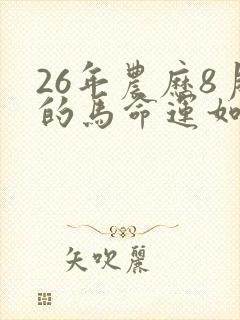 26年農歷8月
的馬命運如
矢吹麗